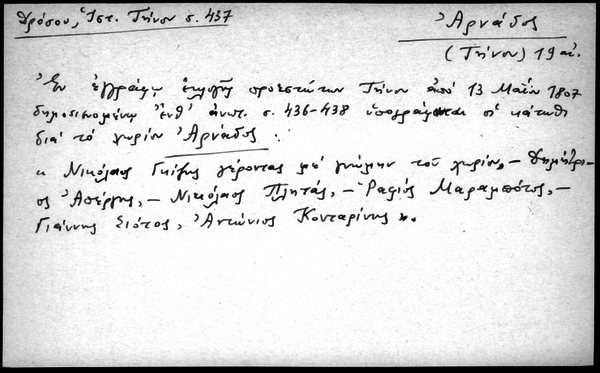 Δρόσου, Ἱστ. Τήνου σ. 437
Ἀρνάδος
(Τήνου) 19 αἰ.
Ἐν ἐγγράφῳ ἐκλογῆς προεστώτων Τήνου ἀπό 13 Μαΐου 1807
δημοσιευομένῳ ἔνθ' ἀνωτ. σ. 436-438 ὑπογράφονται οἱ κάτωθι
διά τό χωρίον Ἀρνάδος :
« Νικόλαος Γκίζης γέροντας μέ γνώμην τοῦ χωρίου, – Δημήτρι-
ος Ἀπέργης, – Νικόλαος Πλητάς, – Ραφιός Μαραμπότος, –
Γιάννης Σιότος, Ἀντώνιος Κονταρίνης ».